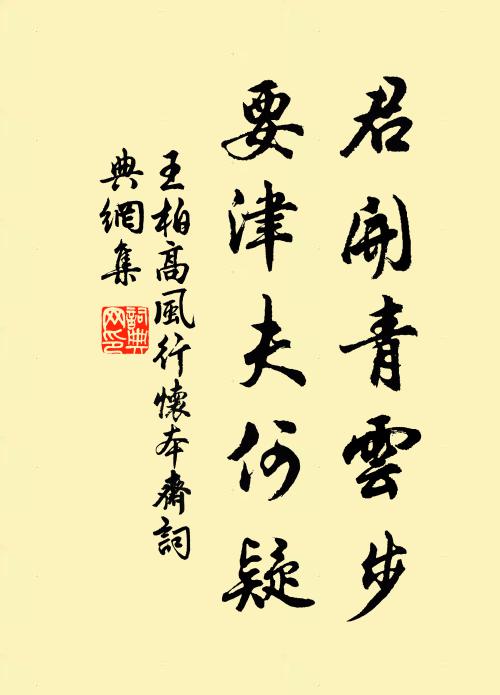 君開青雲步
要津夫何疑
王柏高風行懷本齋詞
典網集
詞典网印